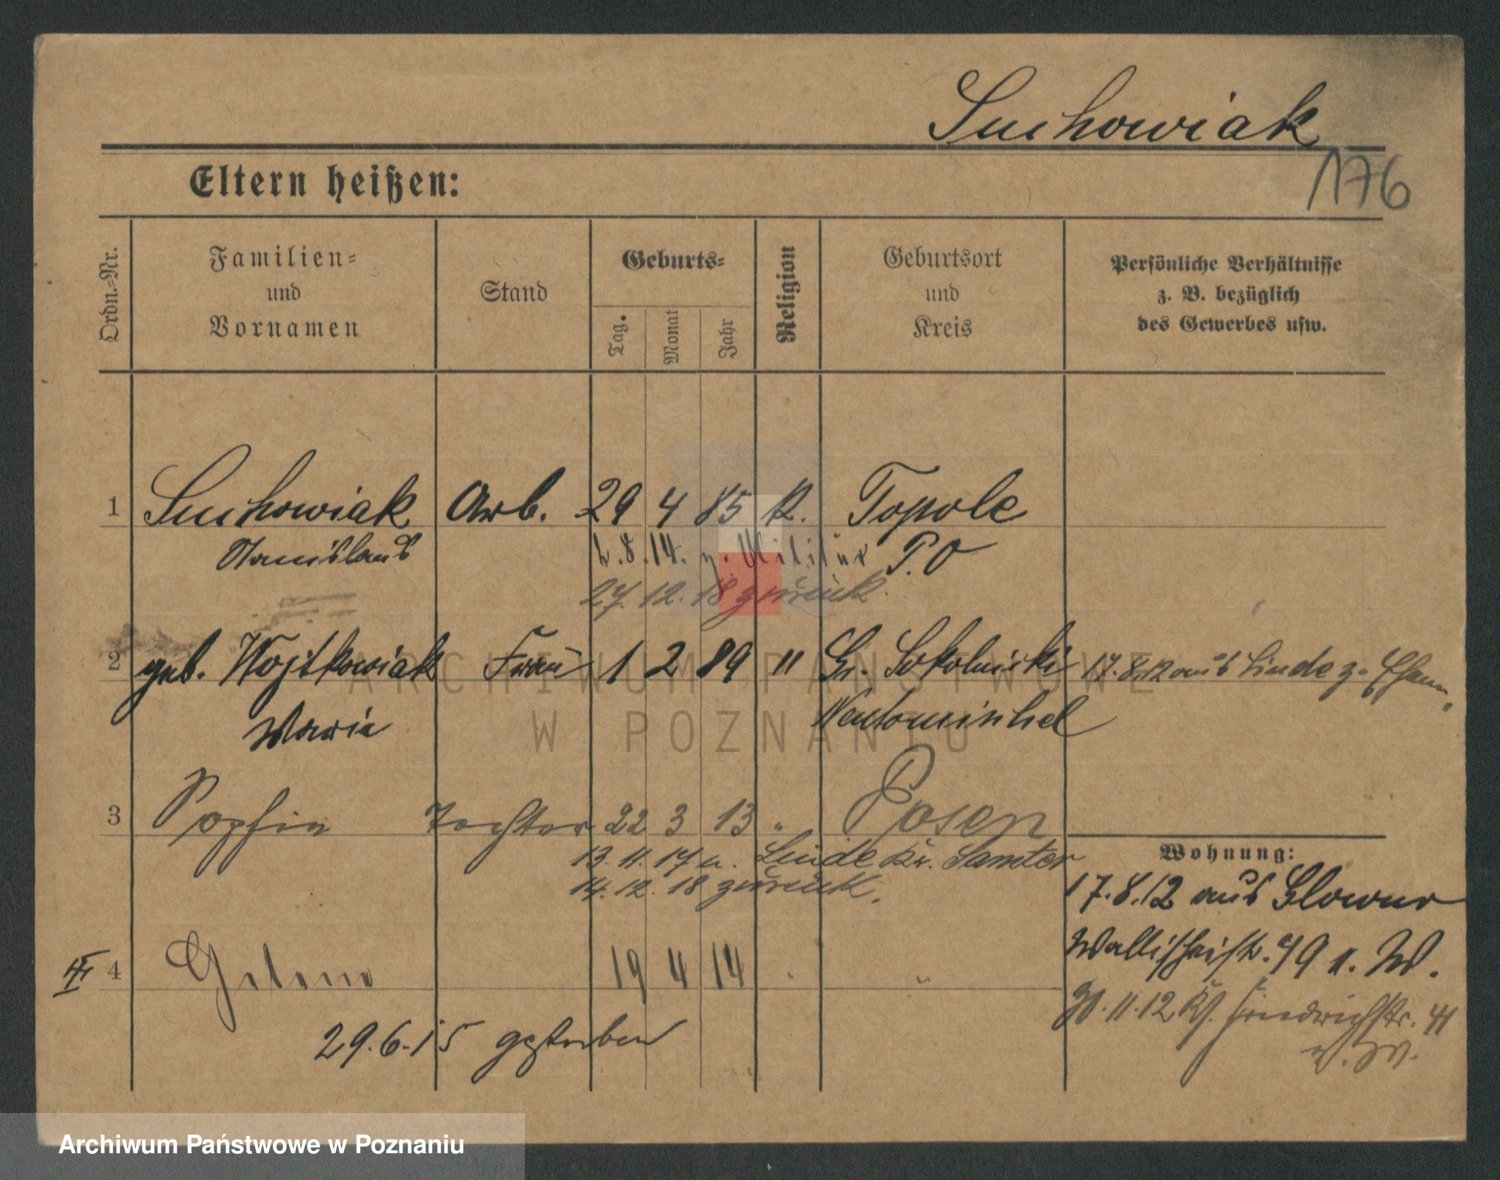 Suchowiak
176
Eltern heißen:
Ordn.-Nr.
Familien-
und
Vornamen
Stand
Geburts-
Tag.
Monat
Jahr
Religion
Geburtsort
und
Kreis
Persönliche Verhältnisse
z. B. bezüglich
des Gewerbes usw.
1 Suchowiak Arb. 29 4 85 k. Topole
Stanislaus 2.8.14. z. Militär P.O
27.12.18 zurück.
2 geb. Wojtkowiak Frau 1 2 89 " Gr. Sokolniki 17.8.12 aus Linde z.
Maria
3 Sophia Tochter 22 3 13 " Posen
13.11.17 n. Linde Kr. Samter
14.12.18 zurück.
Wohnung:
17.8.12 aus Glowno
Wallischeistr. 79 n. W.
4 Helene 19 4 14 " "
11.12 Friedrichstr. 41
29.6.15 gestorben
ARCHIWUM PAŃSTWOWE
W POZNANIU
Archiwum Państwowe w Poznaniu